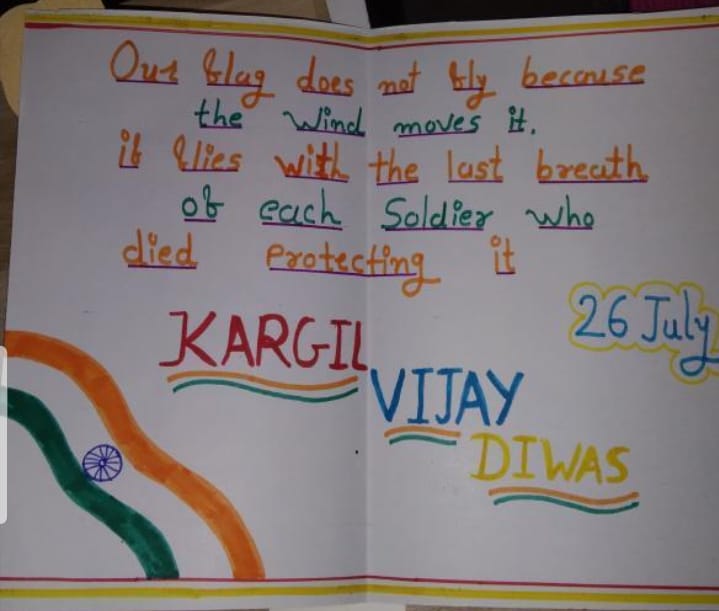 Our flag does not fly because
the wind moves it.
it flies with the last breath
of each Soldier who
died protecting it
26 July
KARGIL
VIJAY
DIWAS